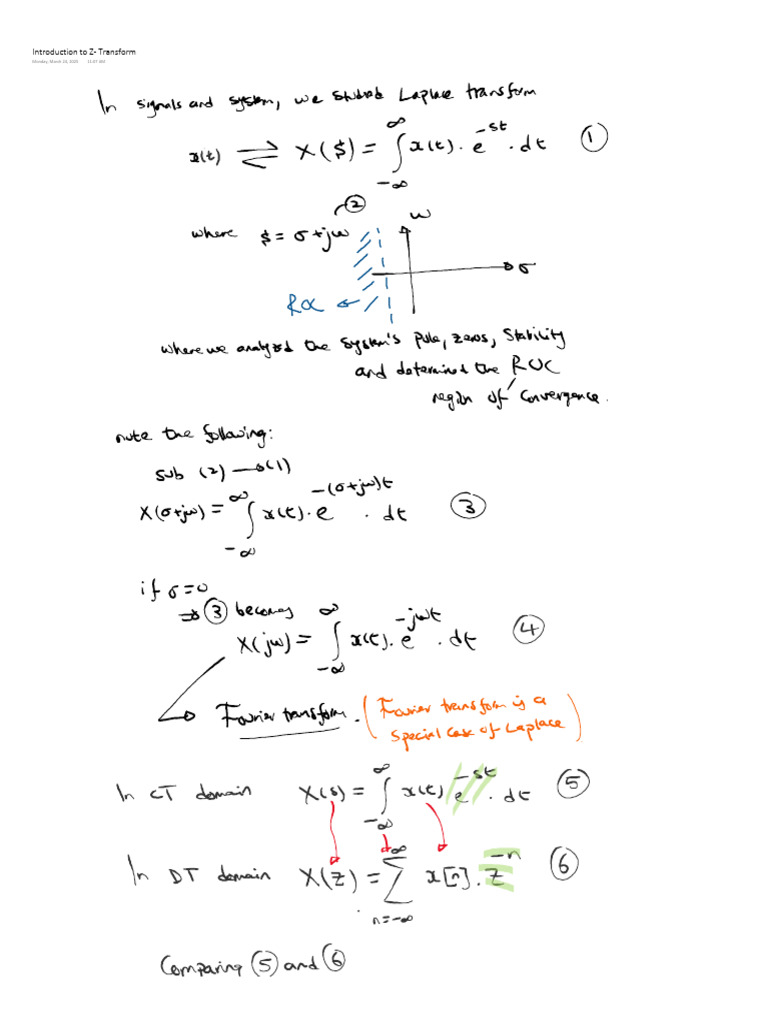 Introduction to Z- Transform
Monday, March 23, 2020 11:07 AM
In signals and system, we studied Laplace transform
x(t) ⇌ X($) = ∫_{-∞}^{∞} x(t) · e^{-st} · dt ①
where $ = σ + jω ②
ω
σ
ROC
where we analyzed the system's Pole, zeros, Stability
and determined the ROC
region of convergence.
note the following:
sub (2) → (1)
X(σ+jω) = ∫_{-∞}^{∞} x(t) · e^{-(σ+jω)t} · dt ③
if σ=0
⇒ ③ becomes
X(jω) = ∫_{-∞}^{∞} x(t) · e^{-jωt} · dt ④
→ Fourier transform. (Fourier transform is a
special case of Laplace)
In CT domain X(s) = ∫_{-∞}^{∞} x(t) e^{-st} · dt ⑤
In DT domain X(z) = ∑_{n=-∞}^{∞} x[n] · z^{-n} ⑥
Comparing ⑤ and ⑥